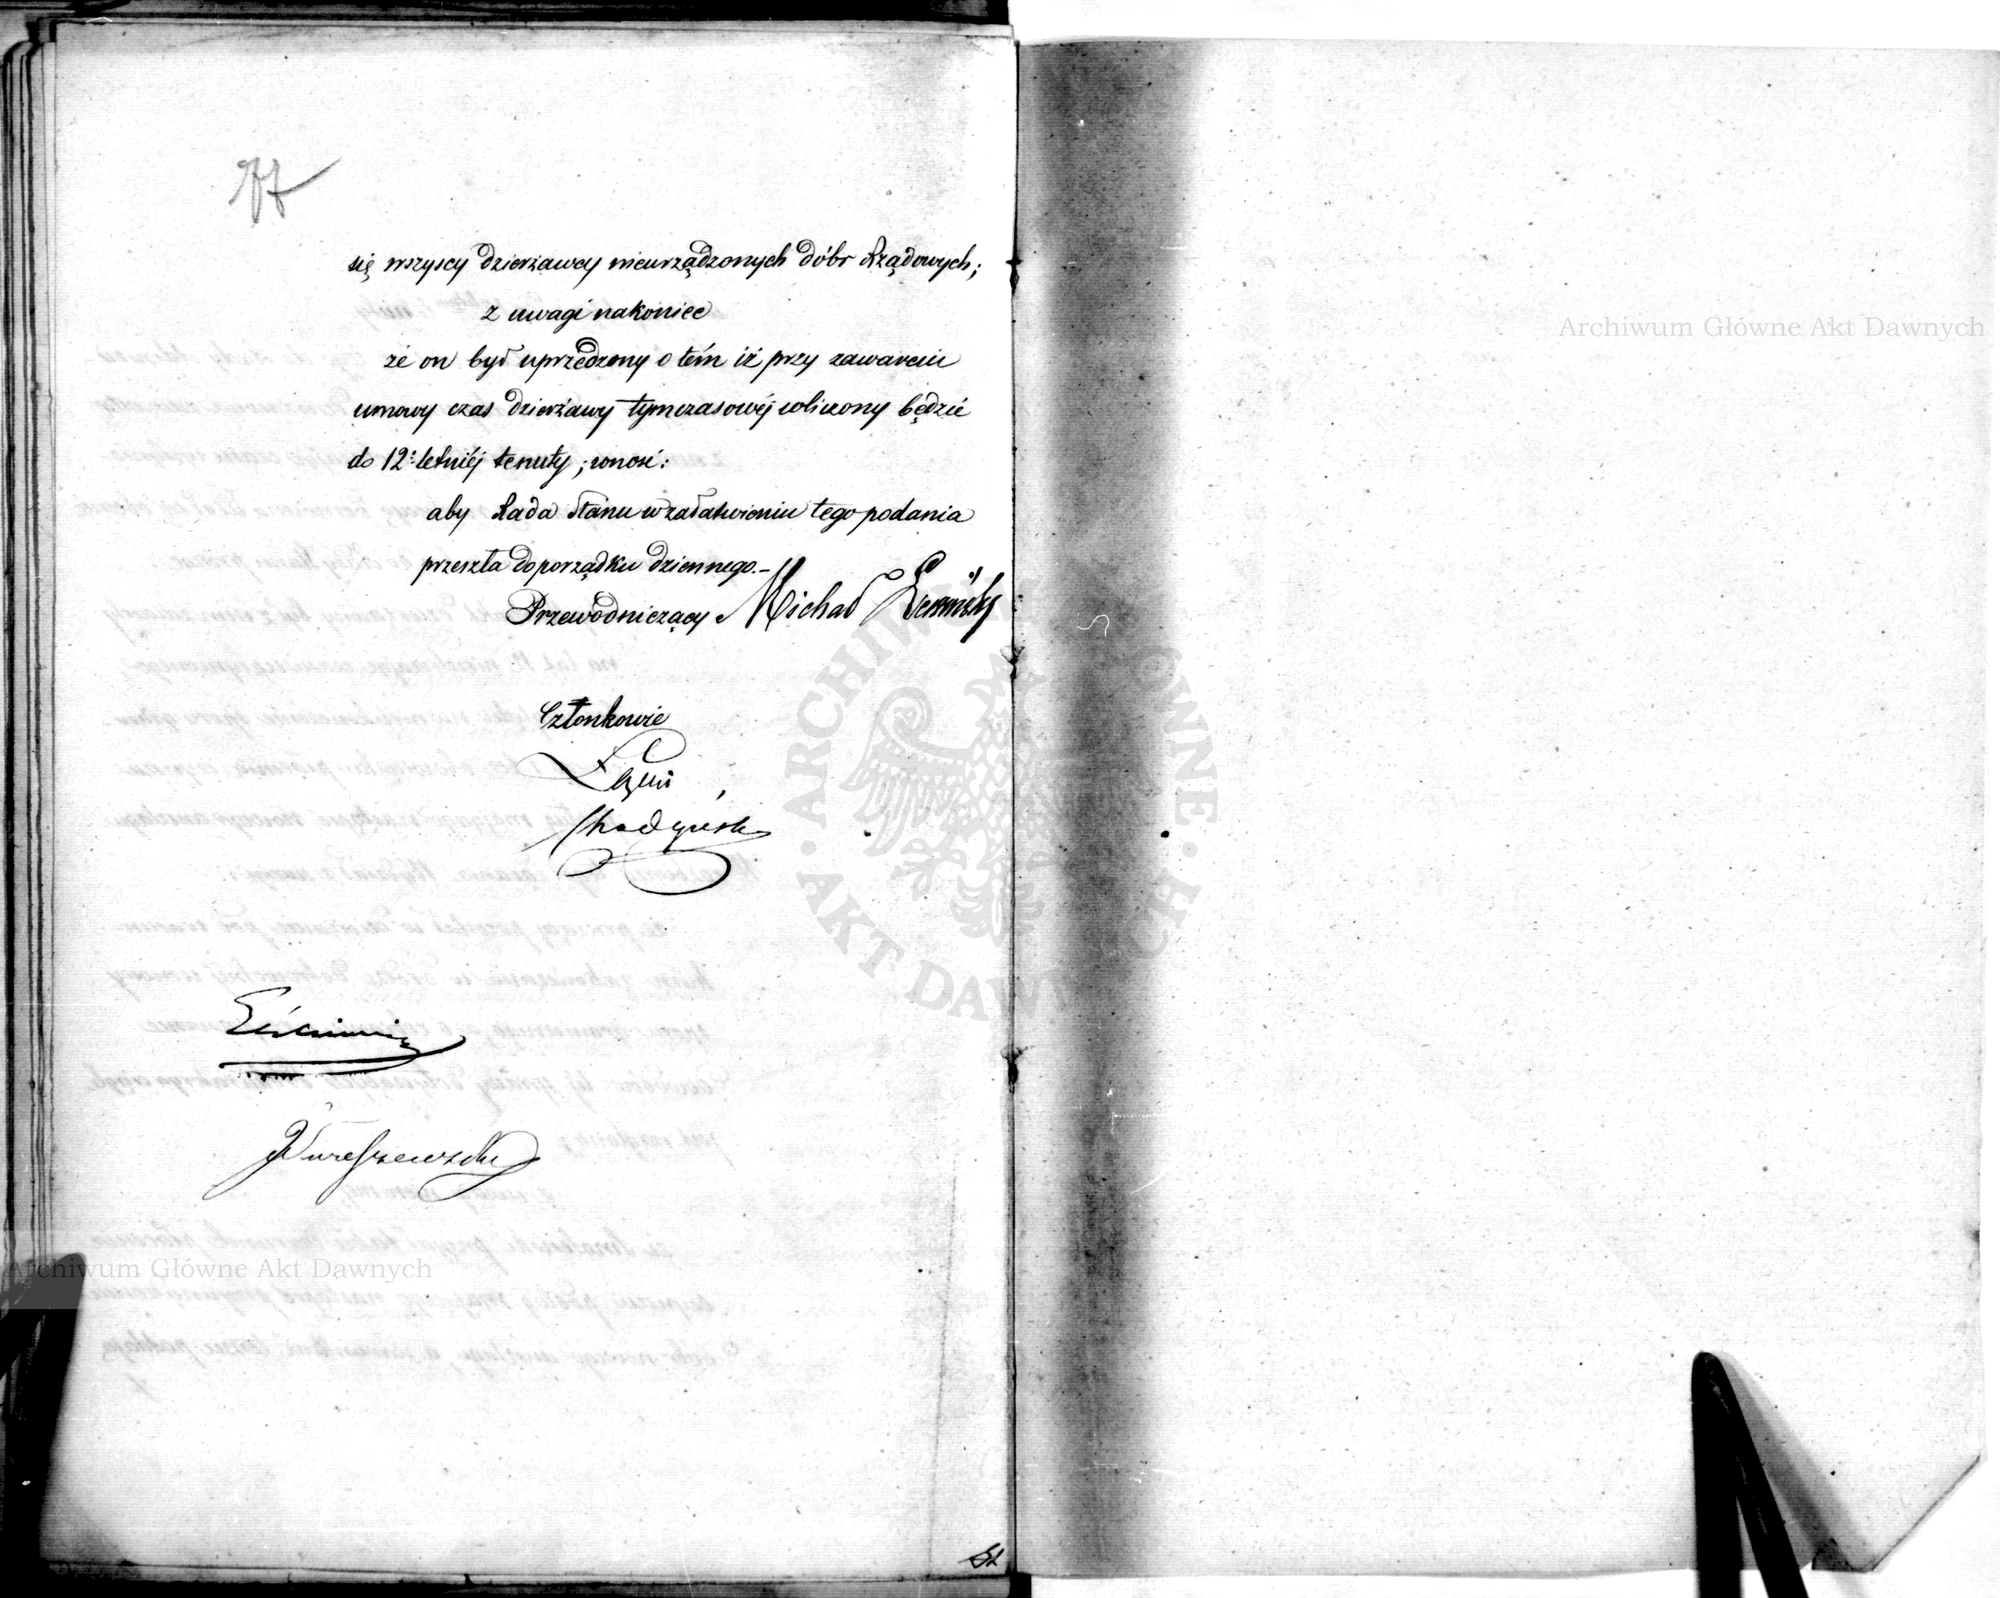 77
się wszyscy dzierżawcy nieurządzonych dóbr Rządowych;
z uwagi nakoniec
że on był uprzedzony o tém iż przy zawarciu
umowy czas dzierżawy tymczasowéj wliczony będzie
do 12: letniéj tenuty; wnosi:
aby Rada Stanu w załatwieniu tego podania
przeszła do porządku dziennego.-
Przewodniczący Michał
Członkowie
Archiwum Główne Akt Dawnych
ARCHIWUM GŁÓWNE
AKT DAWNYCH
Archiwum Główne Akt Dawnych